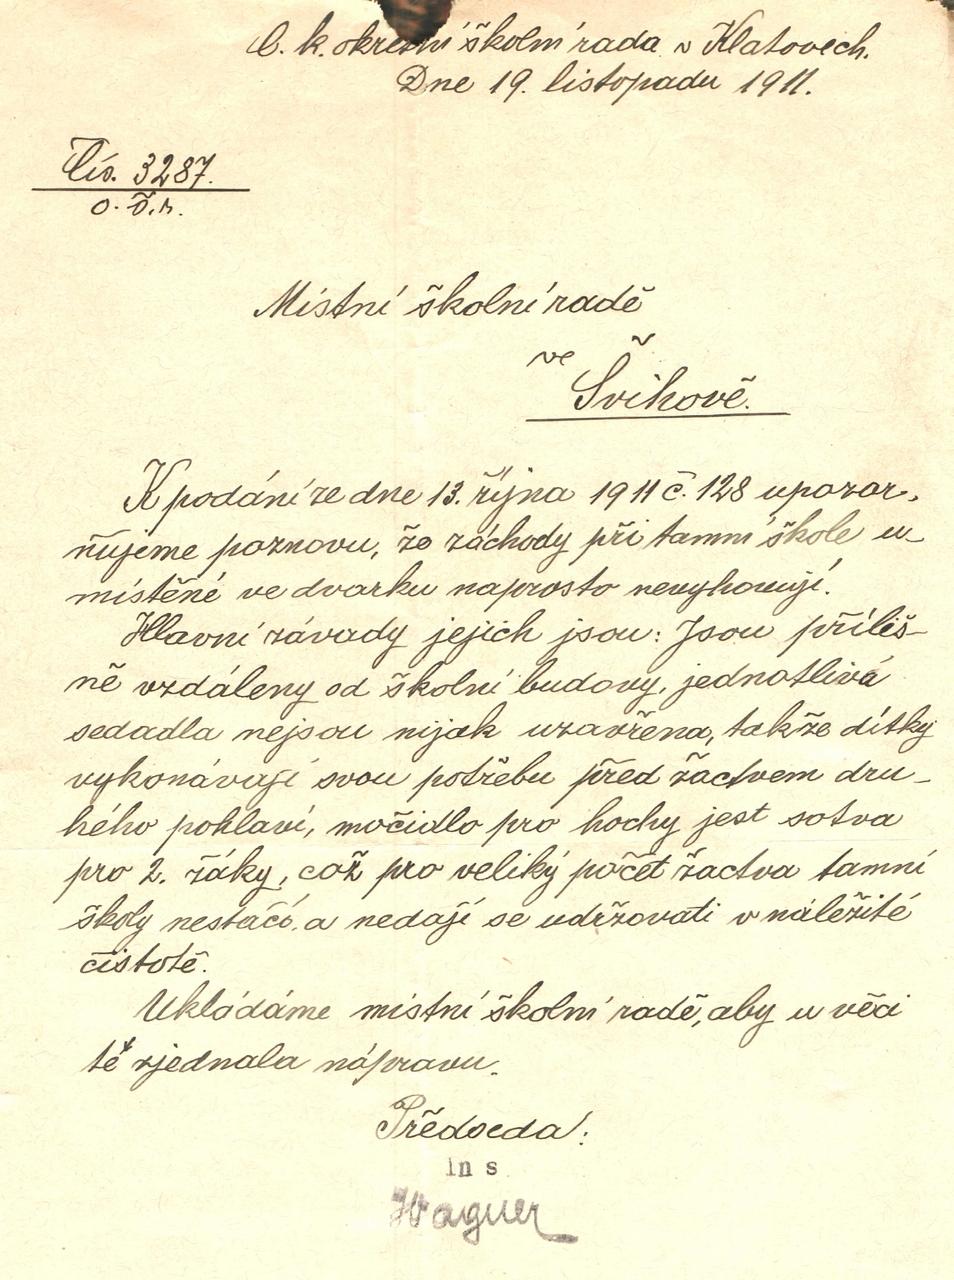 C. k. okresní školní rada v Klatovech.
Dne 19. listopadu 1911.
Čís. 3287.
o. š. r.
Místní školní radě
ve
Švihově.
K podání ze dne 13. října 1911 č. 128 upozor-
ňujeme poznovu, že záchody při tamní škole u-
místěné ve dvorku naprosto nevyhovují.
Hlavní závady jejich jsou: Jsou příliš-
ně vzdáleny od školní budovy, jednotlivá
sedadla nejsou nijak uzavřena, takže dítky
vykonávají svou potřebu před žactvem dru-
hého pohlaví, močidlo pro hochy jest sotva
pro 2. žáky, což pro veliký počet žactva tamní
školy nestačí a nedají se udržovati v náležité
čistotě.
Ukládáme místní školní radě, aby u věci
té zjednala nápravu.
Předseda:
In s
Wagner